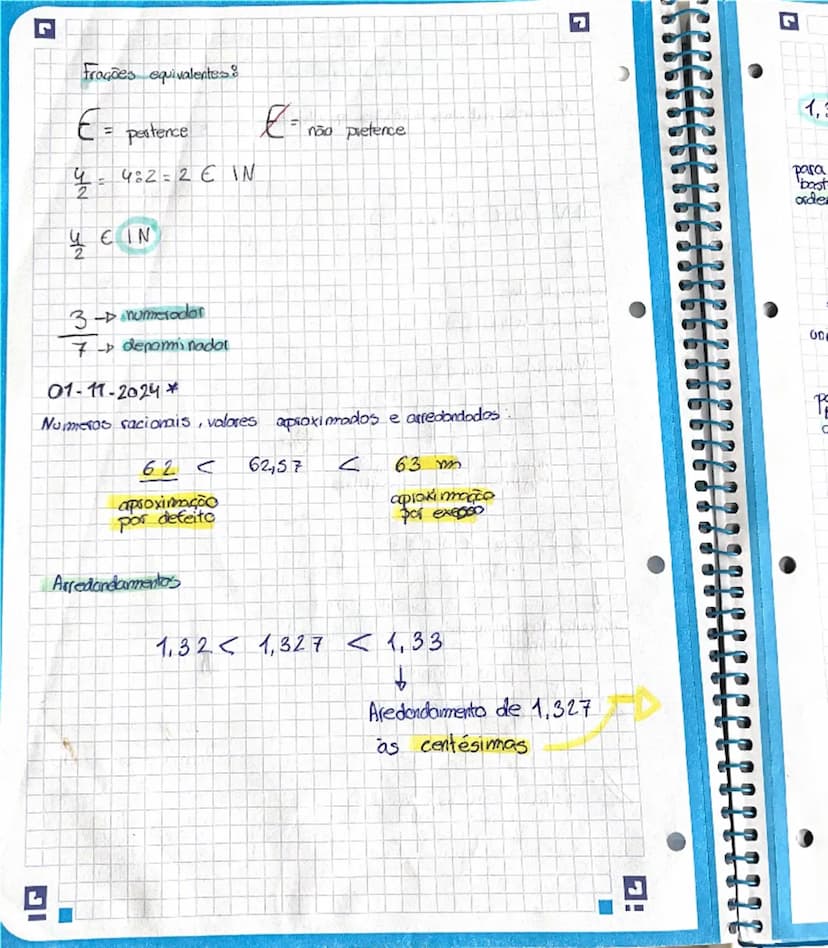 Frações equivalentes:
∈ = pertence ∉ = não pretence
4/2 = 4:2 = 2 ∈ IN
4/2 ∈ IN
3 → numerador
7 → denominador
01-11-2024*
Numeros racionais, valores aproximados e arredondados.
62 < 62,57 < 63 m
aproximação aproximação
por defeito por exesso
Arredondamentos
1,32 < 1,327 < 1,33
↓
Aredondamento de 1,327
às centésimas
para